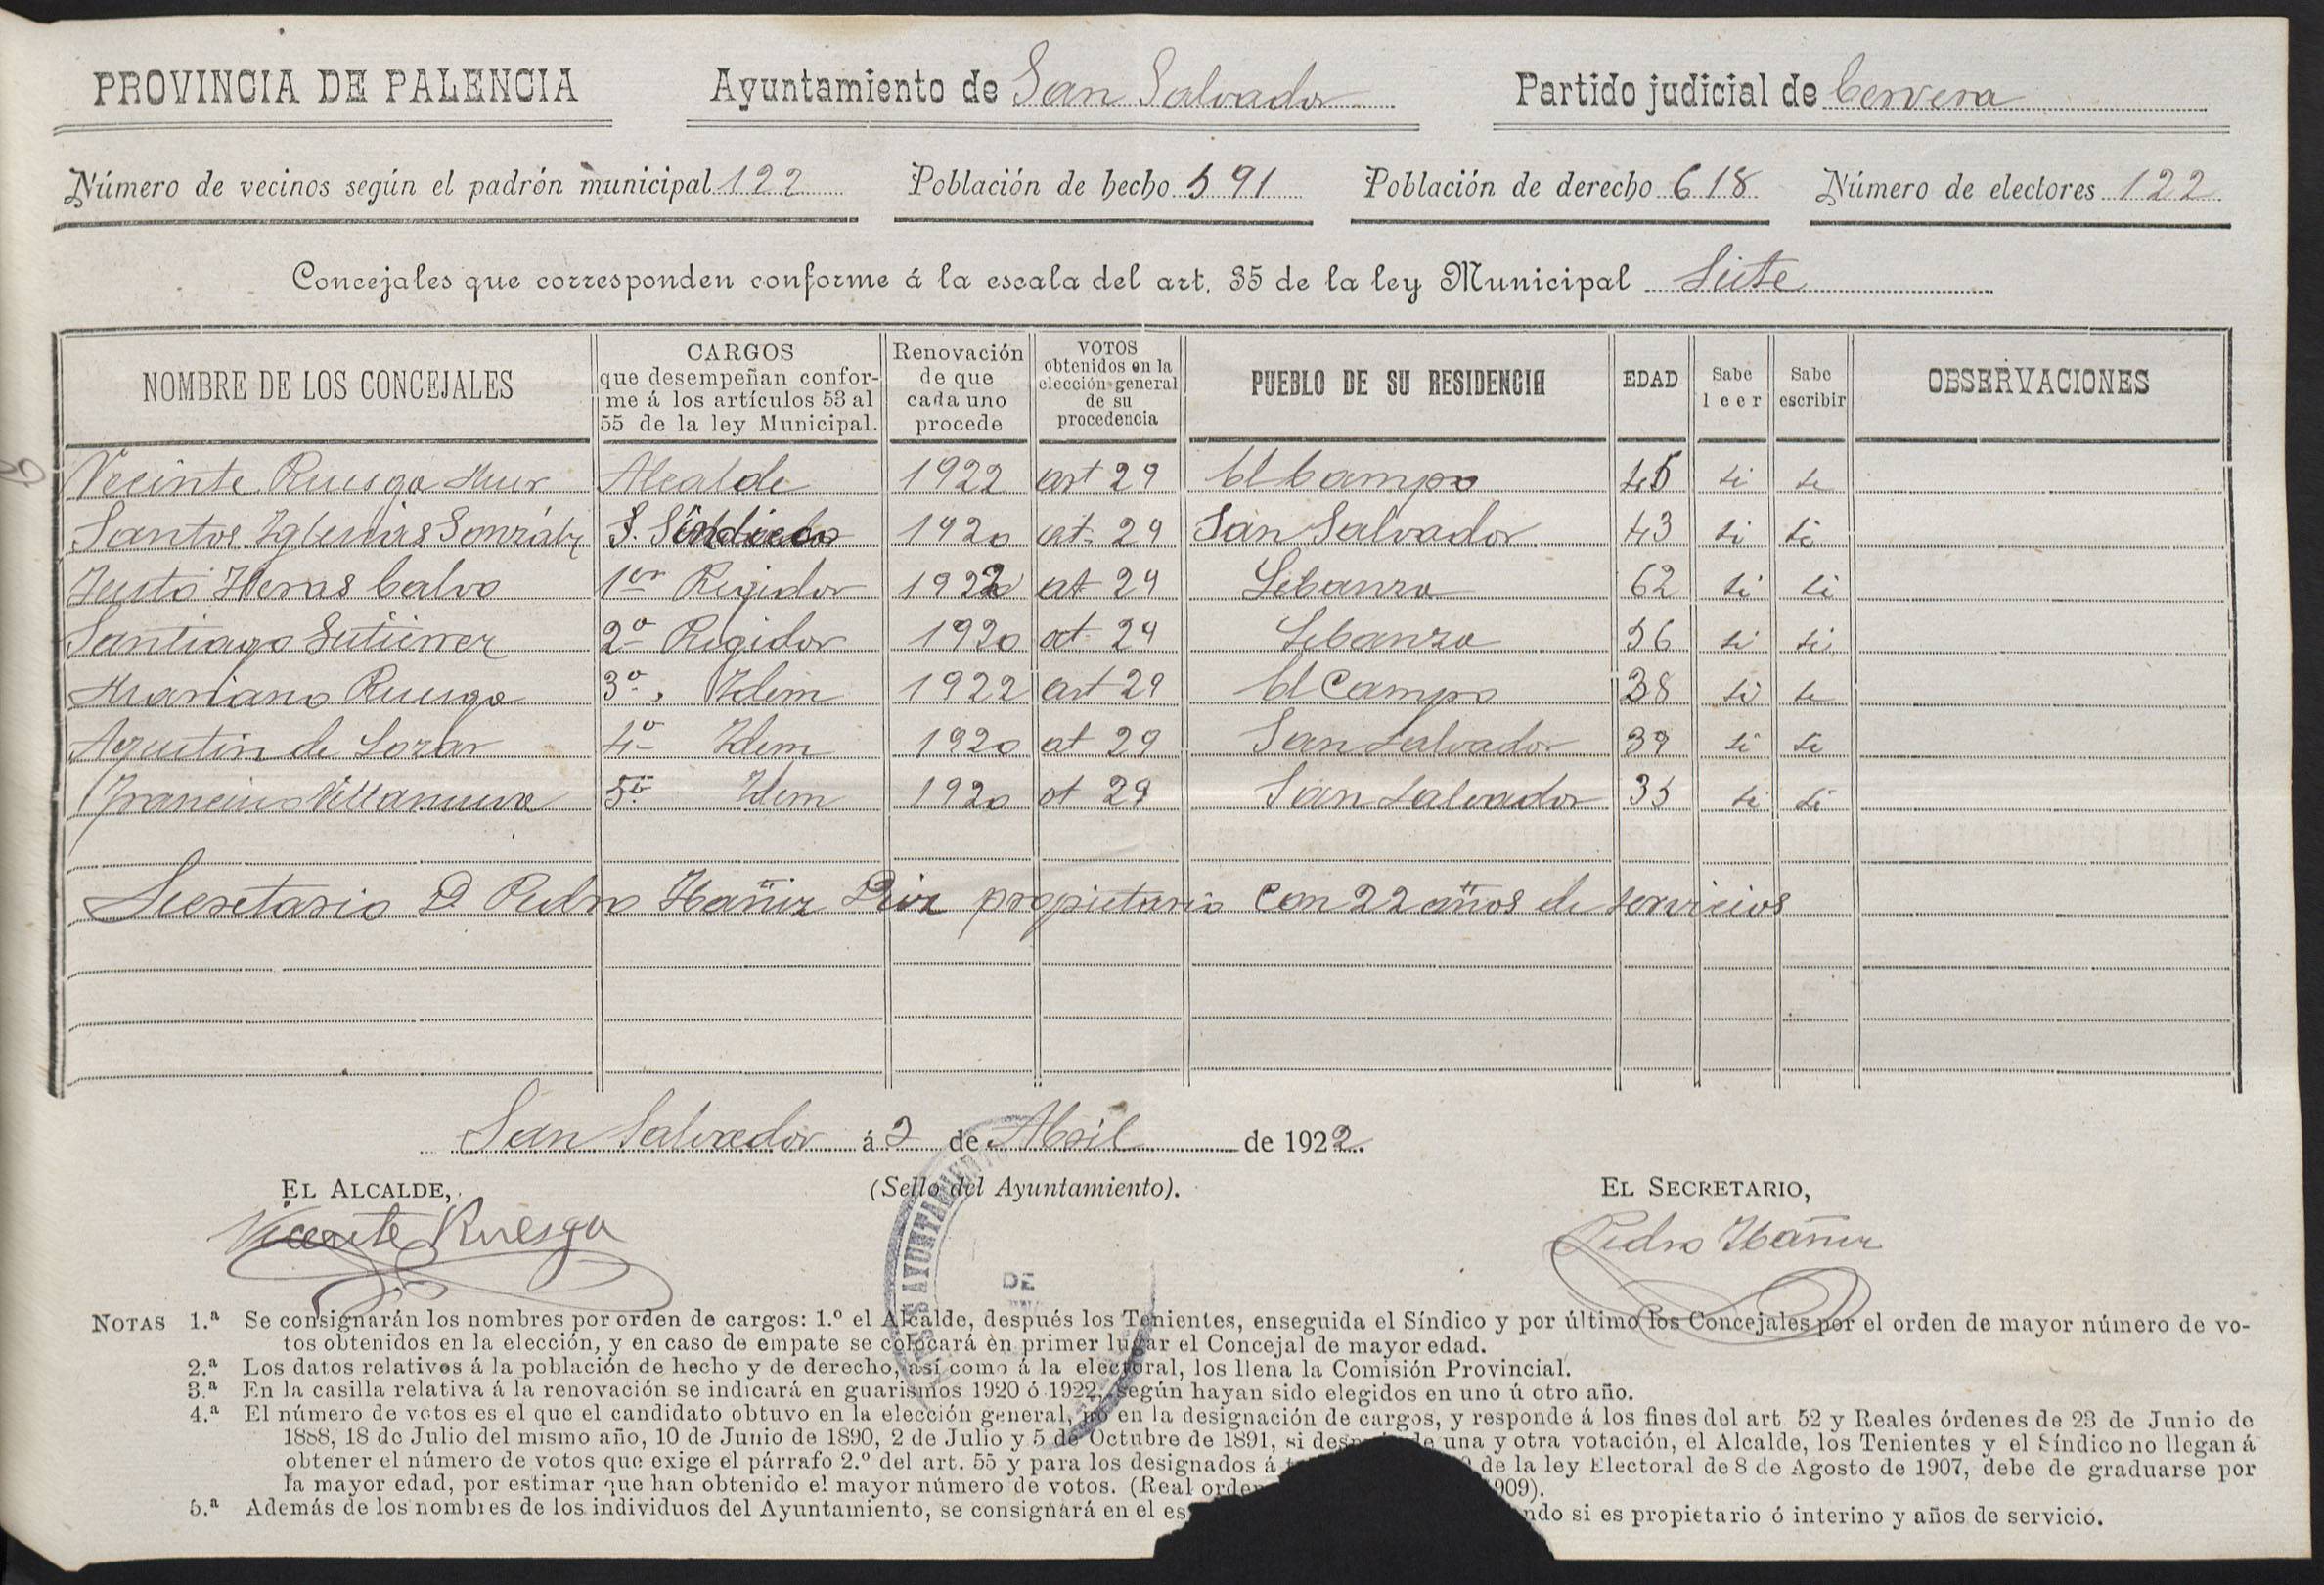 PROVINCIA DE PALENCIA Ayuntamiento de San Salvador Partido judicial de Cervera
Número de vecinos según el padrón municipal 122 Población de hecho 591 Población de derecho 618 Número de electores 122
Concejales que corresponden conforme á la escala del art. 35 de la ley Municipal Siete
NOMBRE DE LOS CONCEJALES CARGOS que desempeñan conforme á los artículos 53 al 55 de la ley Municipal. Renovación de que cada uno procede VOTOS obtenidos en la elección general de su procedencia PUEBLO DE SU RESIDENCIA EDAD Sabe leer Sabe escribir OBSERVACIONES
Vecinte Ruesga Mur Alcalde 1922 art 29 El Campo 45 si si
Santos Iglesias Gonzalez S. Sindico 1920 at. 29 San Salvador 43 si si
Justo Heras Calvo 1er Rigidor 1922 at 29 Lebanza 62 si si
Santiago Gutierrez 2º Rigidor 1920 at 29 Lebanza 56 si si
Mariano Ruesga 3º Idem 1922 art 29 El Campo 38 si si
Agustin de 4º Idem 1920 at 29 San Salvador 39 si si
Francisco Villanueva 5º Idem 1920 at 29 San Salvador 35 si si
Secretario D Pedro Ibañez Diez propietario con 22 años de servicios
San Salvador á 2 de Abril de 1922.
EL ALCALDE, (Sello del Ayuntamiento). EL SECRETARIO,
Vicente Ruesga Pedro Ibañez
AYUNTAMIENTO
DE
NOTAS 1.ª Se consignarán los nombres por orden de cargos: 1.º el Alcalde, después los Tenientes, enseguida el Síndico y por último los Concejales por el orden de mayor número de vo-
tos obtenidos en la elección, y en caso de empate se colocará en primer lugar el Concejal de mayor edad.
2.ª Los datos relativos á la población de hecho y de derecho, así como á la electoral, los llena la Comisión Provincial.
3.ª En la casilla relativa á la renovación se indicará en guarismos 1920 ó 1922, según hayan sido elegidos en uno ú otro año.
4.ª El número de votos es el que el candidato obtuvo en la elección general, no en la designación de cargos, y responde á los fines del art 52 y Reales órdenes de 23 de Junio de
1888, 18 de Julio del mismo año, 10 de Junio de 1890, 2 de Julio y 5 de Octubre de 1891, si después de una y otra votación, el Alcalde, los Tenientes y el Síndico no llegan á
obtener el número de votos que exige el párrafo 2.º del art. 55 y para los designados á de la ley Electoral de 8 de Agosto de 1907, debe de graduarse por
la mayor edad, por estimar que han obtenido el mayor número de votos. (Real orden 909).
5.ª Además de los nombres de los individuos del Ayuntamiento, se consignará en el es ndo si es propietario ó interino y años de servicio.